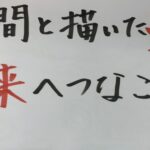 間と描いた
来へつなこ